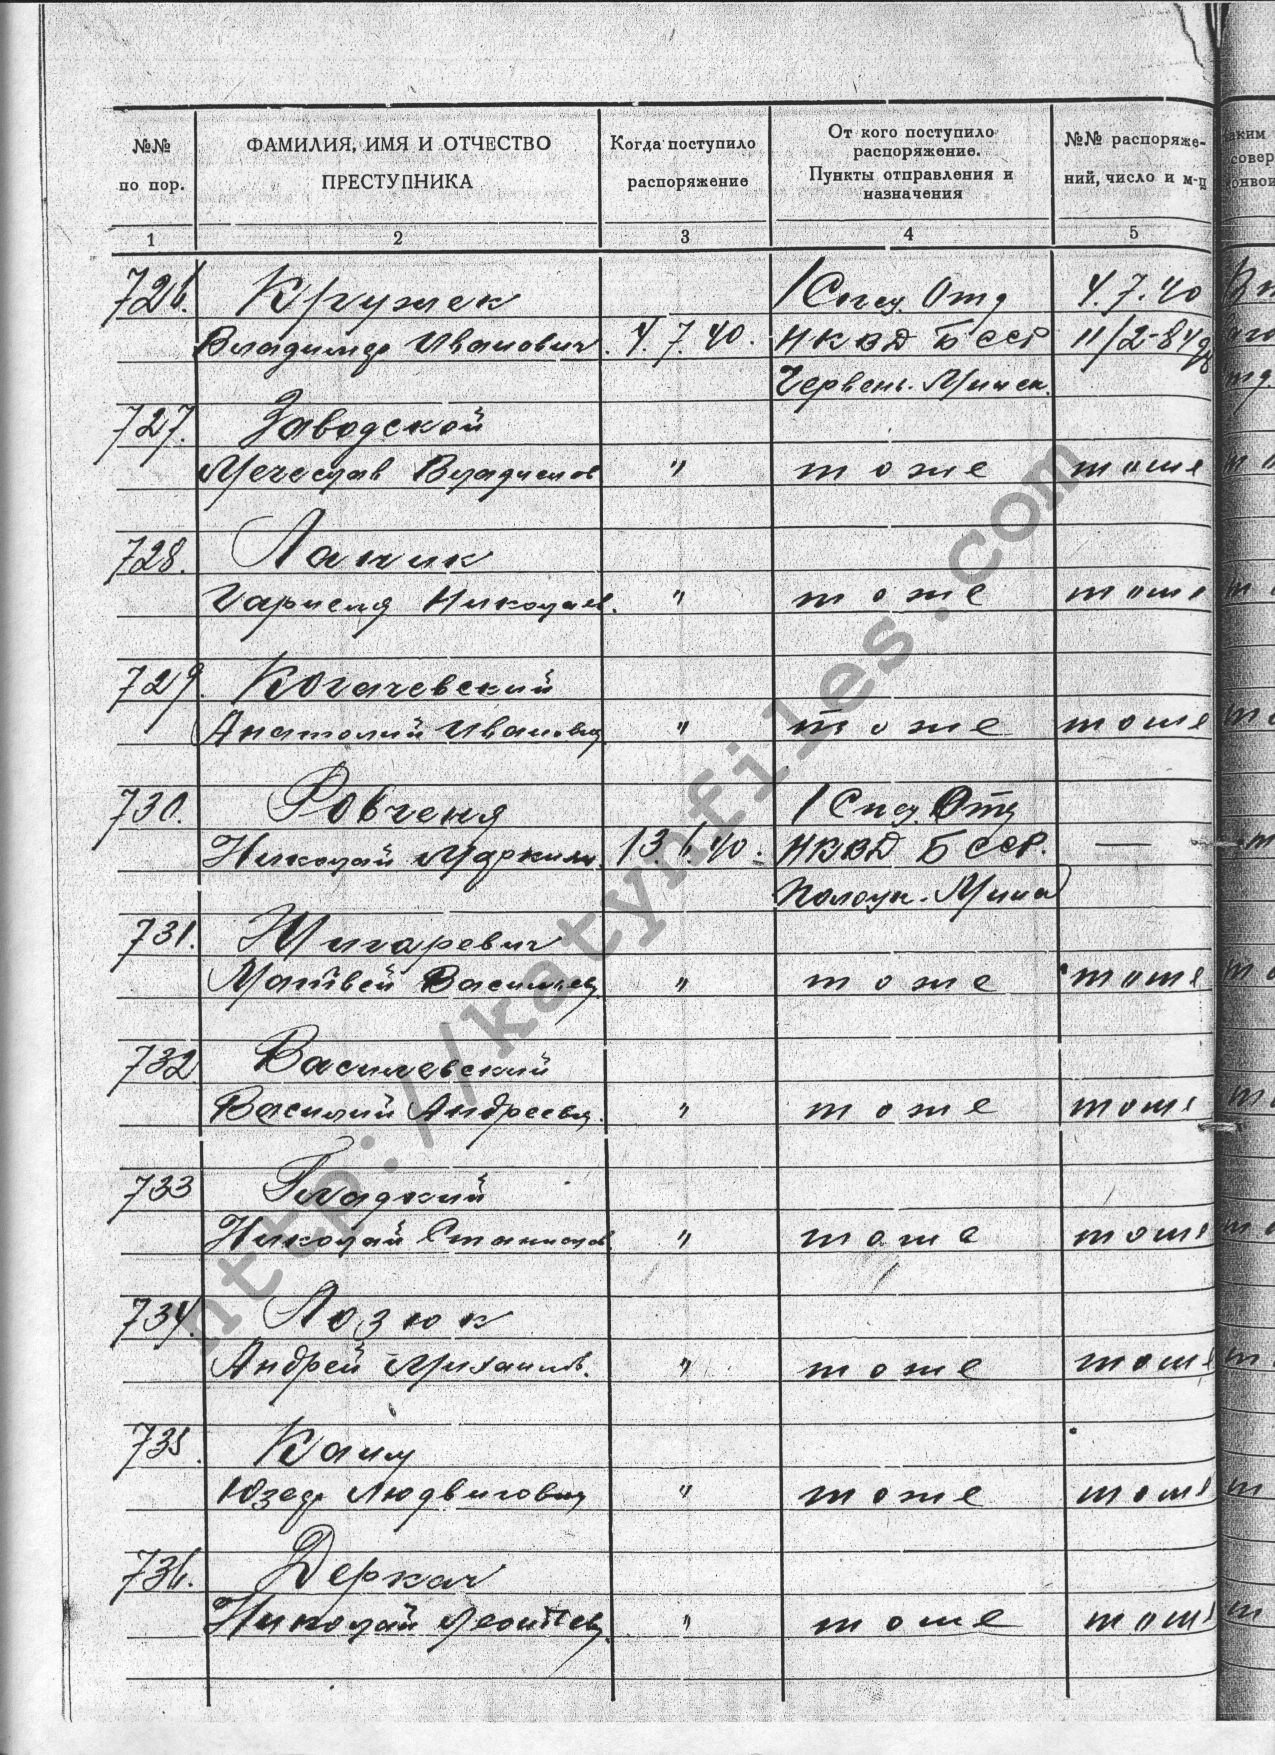 №№ по пор.
ФАМИЛИЯ, ИМЯ И ОТЧЕСТВО ПРЕСТУПНИКА
Когда поступило распоряжение
От кого поступило распоряжение. Пункты отправления и назначения
№№ распоряжений, число и м-ц
1 2 3 4 5
726. Кружек 1 Спец. Отд 4.7.40
Владимир Иванович. 4.7.40. НКВД БССР 11/2-84
Червень. Минск.
727. Заводской
Мечеслав Владислов " тоже тоже
728. Лапик
Николаев. " тоже тоже
729. Когачевский
Анатолий Иванович " тоже тоже
730. Ровченя 1 Спец. Отд
Николай 13 40. НКВД БССР. —
Минск
731. Жигаревич
Матвей Васильев " тоже тоже
732 Василевский
Василий Андреевич. " тоже тоже
733 Гладкий
Николай Станислов. " тоже тоже
734. Лозюк
Андрей Михайлов. " тоже тоже
735. Каим
Юзеф Людвигович " тоже тоже
736. Деркач
Николай " тоже тоже
http://katynfiles.com